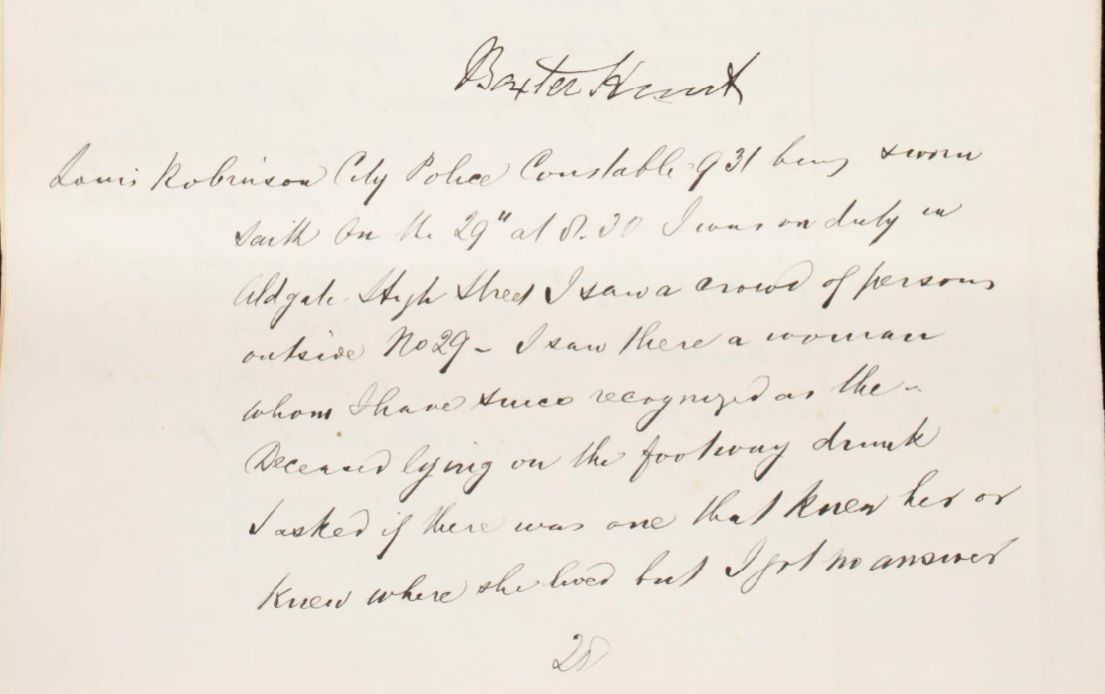 Baxter Hunt
Louis Robinson City Police Constable 931 being sworn
saith On the 29" at 8.30 I was on duty in
Aldgate High Street I saw a crowd of persons
outside No 29 - I saw there a woman
whom I have since recognized as the
Deceased lying on the footway drunk
I asked if there was one that knew her or
knew where she lived but I got no answer
28